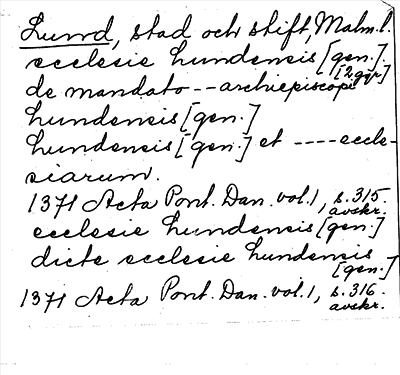 Lund, stad och stift, Malm.l.
ecclesie Lundensis [gen.]
[2 ggr]
de mandato -- archiepiscopi
Lundensis [gen.]
Lundensis [gen.] et ---- eccle-
siarum.
1371 Acta Pont. Dan. vol. 1, s. 315.
avskr.
ecclesie Lundensis [gen.]
dicte ecclesie Lundensis
[gen.]
1371 Acta Pont. Dan. vol. 1, s. 316.
avskr.